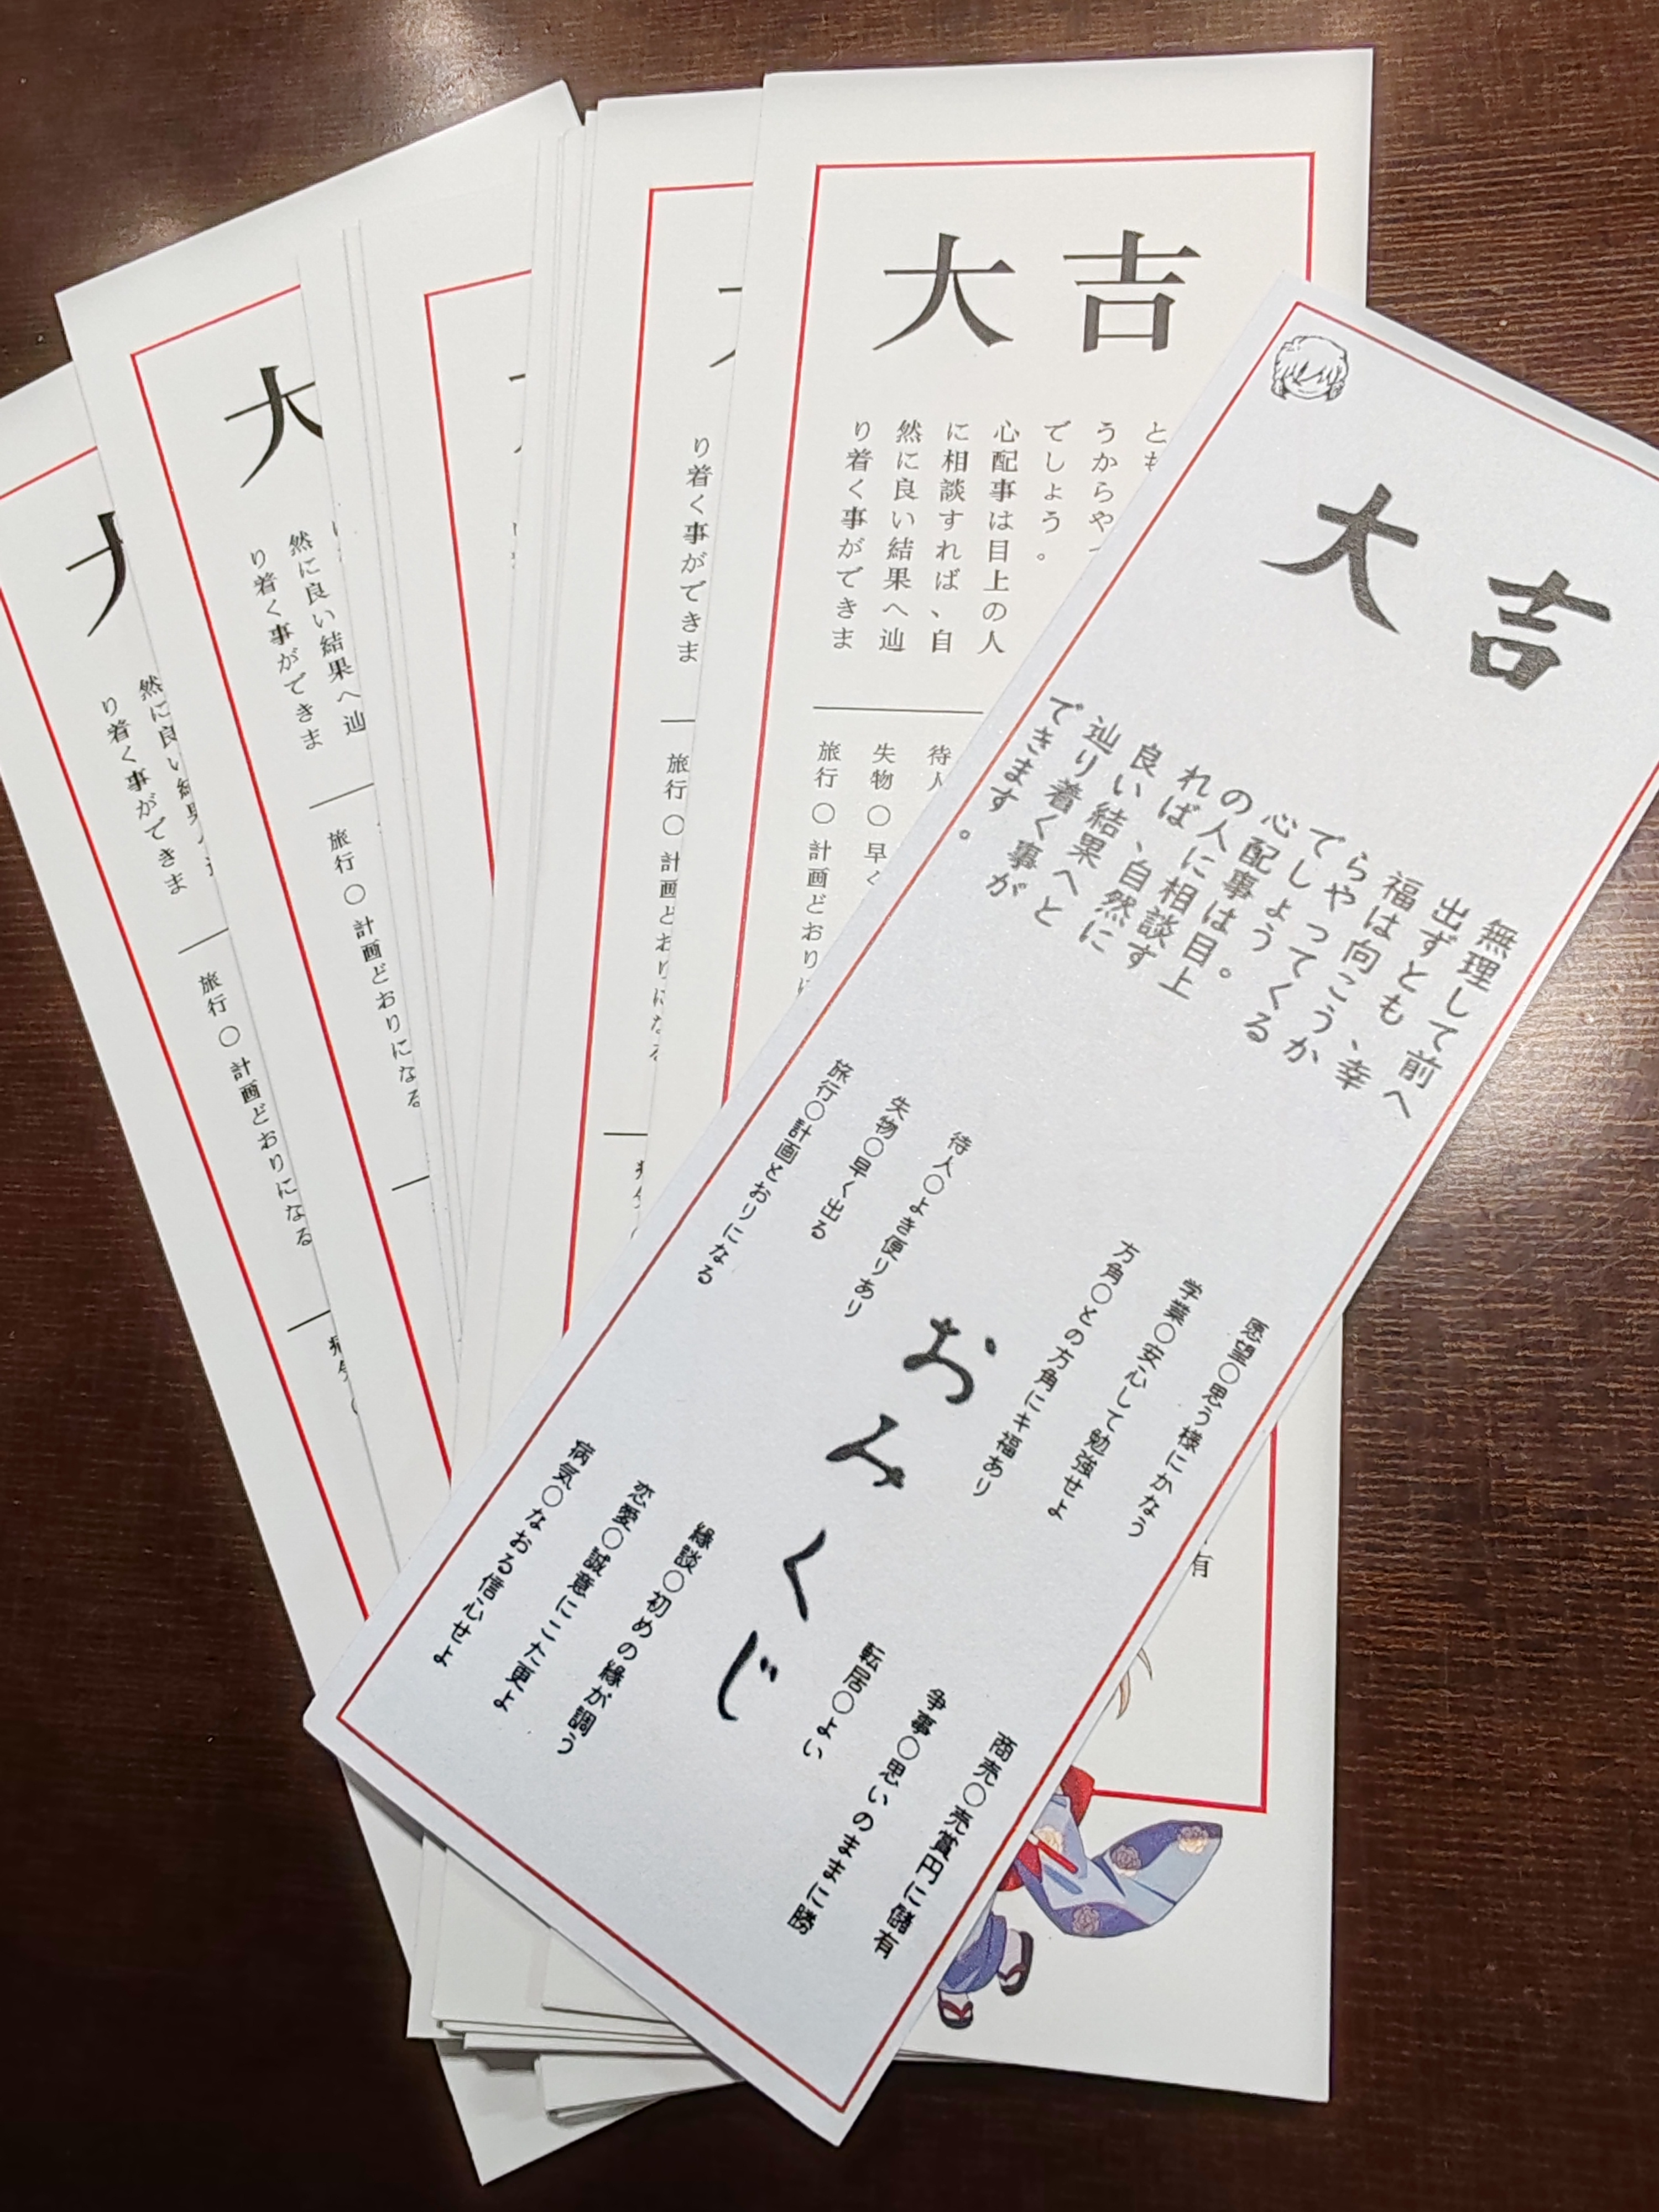 大吉
無理して前へ
出ずとも、幸
福は向こうか
らやってくる
でしょう。
心配事は目上
の人に相談す
れば、自然に
良い結果へと
辿り着く事が
できます。
願望〇思う様にかなう
学業〇安心して勉強せよ
方角〇との方角にキ福あり
待人〇よき便りあり
失物〇早く出る
旅行〇計画とおりになる
おみくじ
商売〇売賞円に儲有
争事〇思いのままに勝
転居〇よい
縁談〇初めの縁が調う
恋愛〇誠意にこた更よ
病気〇なおる信心せよ
大吉
とも
うからや
でしょう。
心配事は目上の人
に相談すれば、自
然に良い結果へ辿
り着く事ができま
待人
失物〇早く
旅行〇計画どおりに
有
り着く事ができま
旅行〇計画どおりになる
大
然に良い結果へ辿
り着く事ができま
旅行〇計画どおりになる
大
然に良い結果
り着く事ができま
旅行〇計画どおりになる